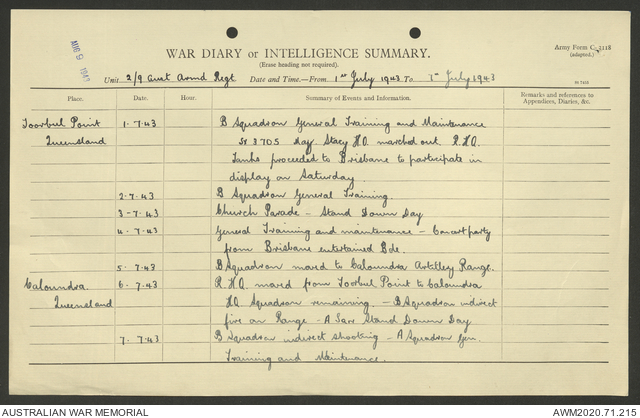 AUG 9 1943
WAR DIARY or INTELLIGENCE SUMMARY.
(Erase heading not required).
Army Form C. 2118
(adapted.)
Unit 2/9 Aust Armd Regt Date and Time.—From 1st July 1943 To 7th July 1943
Place. Date. Hour. Summary of Events and Information. Remarks and references to
Appendices, Diaries, &c.
Toorbul Point 1.7.43 B Squadron General Training and Maintenance
Queensland SX3705 Maj Stacy H.O. marched out R.H.Q.
Tanks proceeded to Brisbane to participate in
display on Saturday.
2.7.43 B Squadron General Training.
3-7.43 Church Parade - Stand Down Day
4.7.43 General Training and maintenance - Concert party
from Brisbane entertained Bde.
5.7.43 B Squadron moved to Caloundra Artillery Range.
Caloundra. 6.7.43 R.H.Q. moved from Toorbul Point to Caloundra
Queensland HQ Squadron remaining. - B Squadron indirect
fire on Range - A Sqn Stand Down Day
7.7.43 B Squadron indirect shooting - A Squadron Gen.
Training and Maintenance.
AUSTRALIAN WAR MEMORIAL
AWM2020.71.215